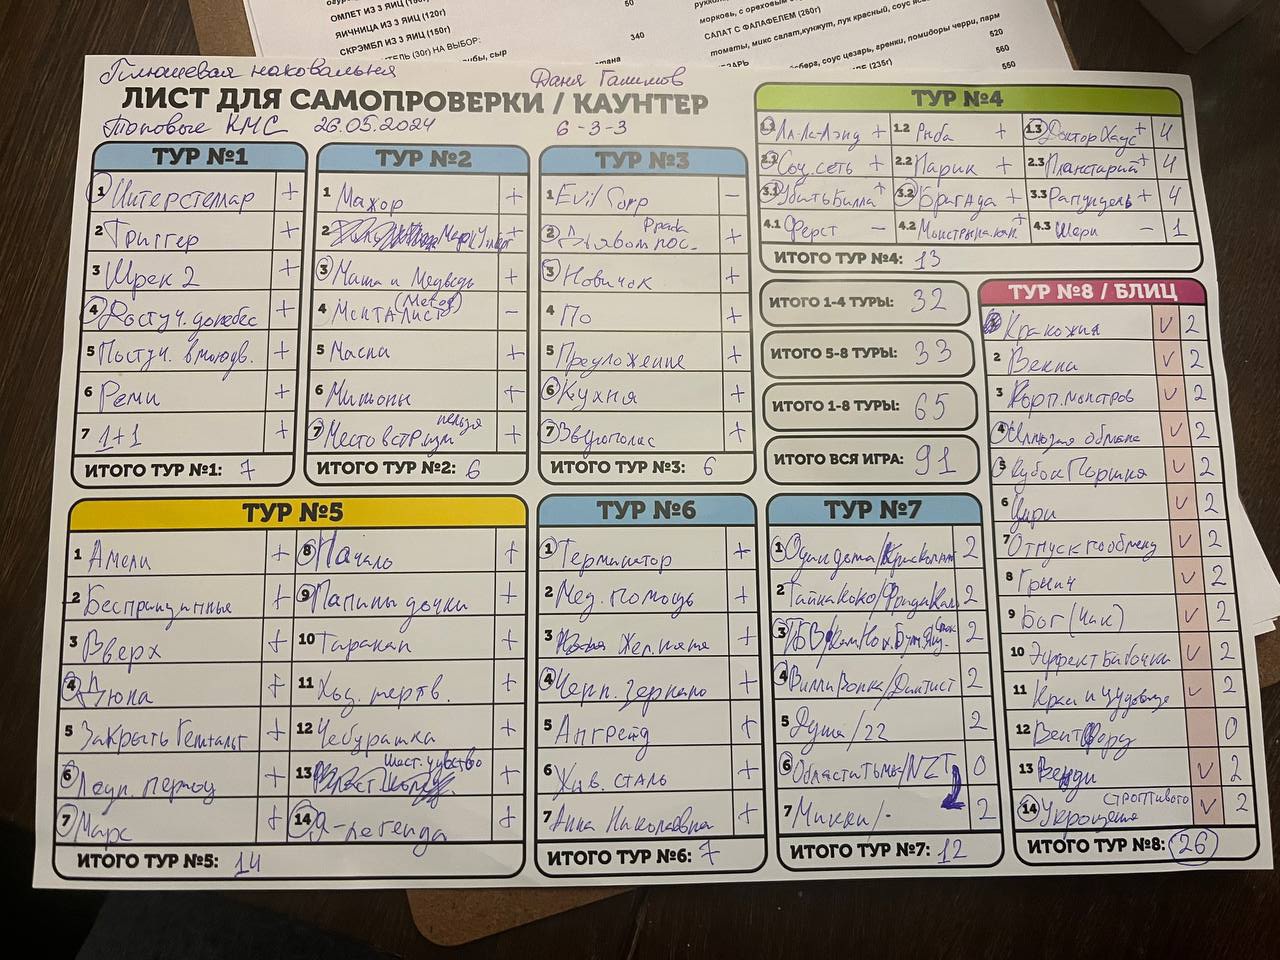 ОМЛЕТ ИЗ 3 ЯИЦ
ЯИЧНИЦА ИЗ 3 ЯИЦ (120г)
СКРЭМБЛ ИЗ 3 ЯИЦ (150г)
(30г) НА ВЫБОР:
сыр
50
340
морковь, с ореховым
САЛАТ С ФАЛАФЕЛЕМ (260г)
томаты, микс салат,кунжут, лук красный, соус
соус цезарь, гренки, помидоры черри, парм
(235г)
520
560
550
Плюшевая наковальня
Даня Галимов
ЛИСТ ДЛЯ САМОПРОВЕРКИ / КАУНТЕР
Топовые КМС 26.05.2024 6-3-3
ТУР №1
1 Интерстеллар +
2 Триггер +
3 Шрек 2 +
4 Достуч. до небес +
5 Постуч. в мою дв. +
6 Реми +
7 1+1 +
ИТОГО ТУР №1: 7
ТУР №2
1 Мажор +
2 Марк Уолберг +
3 Маша и Медведь +
4 Менталист (Метод) –
5 Маска +
6 Миньоны +
7 Место встр. изм нельзя +
ИТОГО ТУР №2: 6
ТУР №3
1 Evil Corp –
2 Дьявол нос. Prada +
3 Новичок +
4 По +
5 Предложение +
6 Кухня +
7 Зверополис +
ИТОГО ТУР №3: 6
ТУР №4
1.1 Ла-Ла-Лэнд + 1.2 Рыба + 1.3 Доктор Хаус + 4
2.1 Соц. сеть + 2.2 Парик + 2.3 Планетарий + 4
3.1 Убить Билла + 3.2 Бригада + 3.3 Рапунцель + 4
4.1 Ферст – 4.2 Монстры на кан + 4.3 Шери – 1
ИТОГО ТУР №4: 13
ИТОГО 1-4 ТУРЫ: 32
ИТОГО 5-8 ТУРЫ: 33
ИТОГО 1-8 ТУРЫ: 65
ИТОГО ВСЯ ИГРА: 91
ТУР №5
1 Амели +
2 Беспринципные +
3 Вверх +
4 Дюна +
5 Закрыть Гештальт +
6 Ледн. период +
7 Марс +
8 Начало +
9 Папины дочки +
10 Таракан +
11 Ход. мертв. +
12 Чебурашка +
13 Шест. чувство +
14 Я-легенда +
ИТОГО ТУР №5: 14
ТУР №6
1 Терминатор +
2 Мед. помощь +
3 Жел. няня +
4 Черн. зеркало +
5 Апгрейд +
6 Жив. сталь +
7 Анна Николаевна +
ИТОГО ТУР №6: 7
ТУР №7
1 Один дома/ 2
2 Тайна Коко/Фрида Кало 2
3 2
4 Вилли Вонка/Дантист 2
5 Душа/22 2
6 Области тьмы/NZT 0
7 Микки/- 2
ИТОГО ТУР №7: 12
ТУР №8 / БЛИЦ
Кракожия V 2
2 Векна V 2
3 Корп. монстров V 2
4 Иллюзия обмана V 2
5 V 2
6 Цири V 2
7 Отпуск по обмену V 2
8 Гринч V 2
9 Бог (Чак) V 2
10 Эффект бабочки V 2
11 Крас и чудовище V 2
12 0
13 Венди V 2
14 Укрощение строптивого V 2
ИТОГО ТУР №8: 26